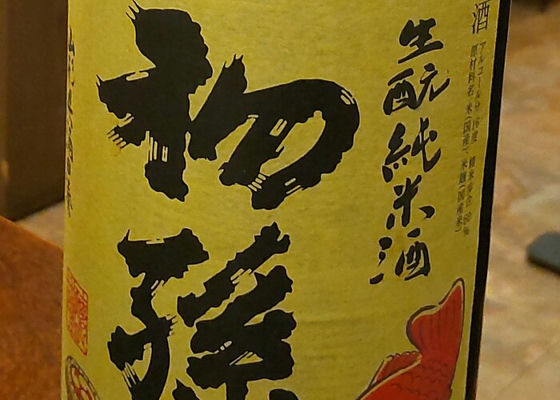 酒
アルコール分 16度 精米歩合 60%
原材料名 米(国産) 米麹(国産米)
生酛純米酒
初孫